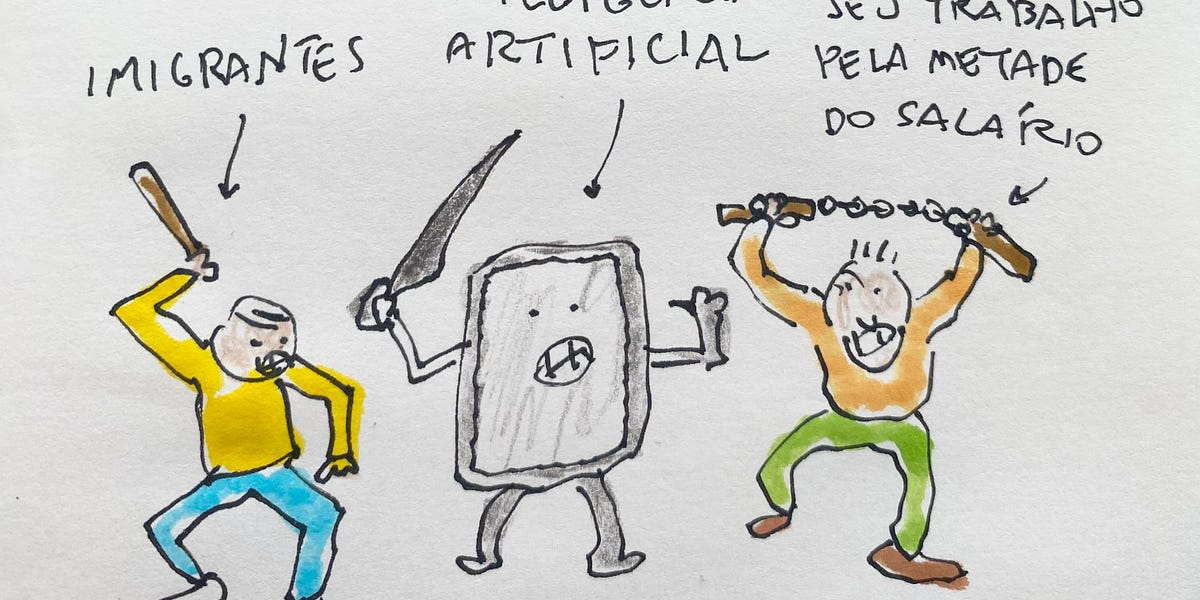 IMIGRANTES
ARTIFICIAL
SEU TRABALHO
PELA METADE
DO SALÁRIO